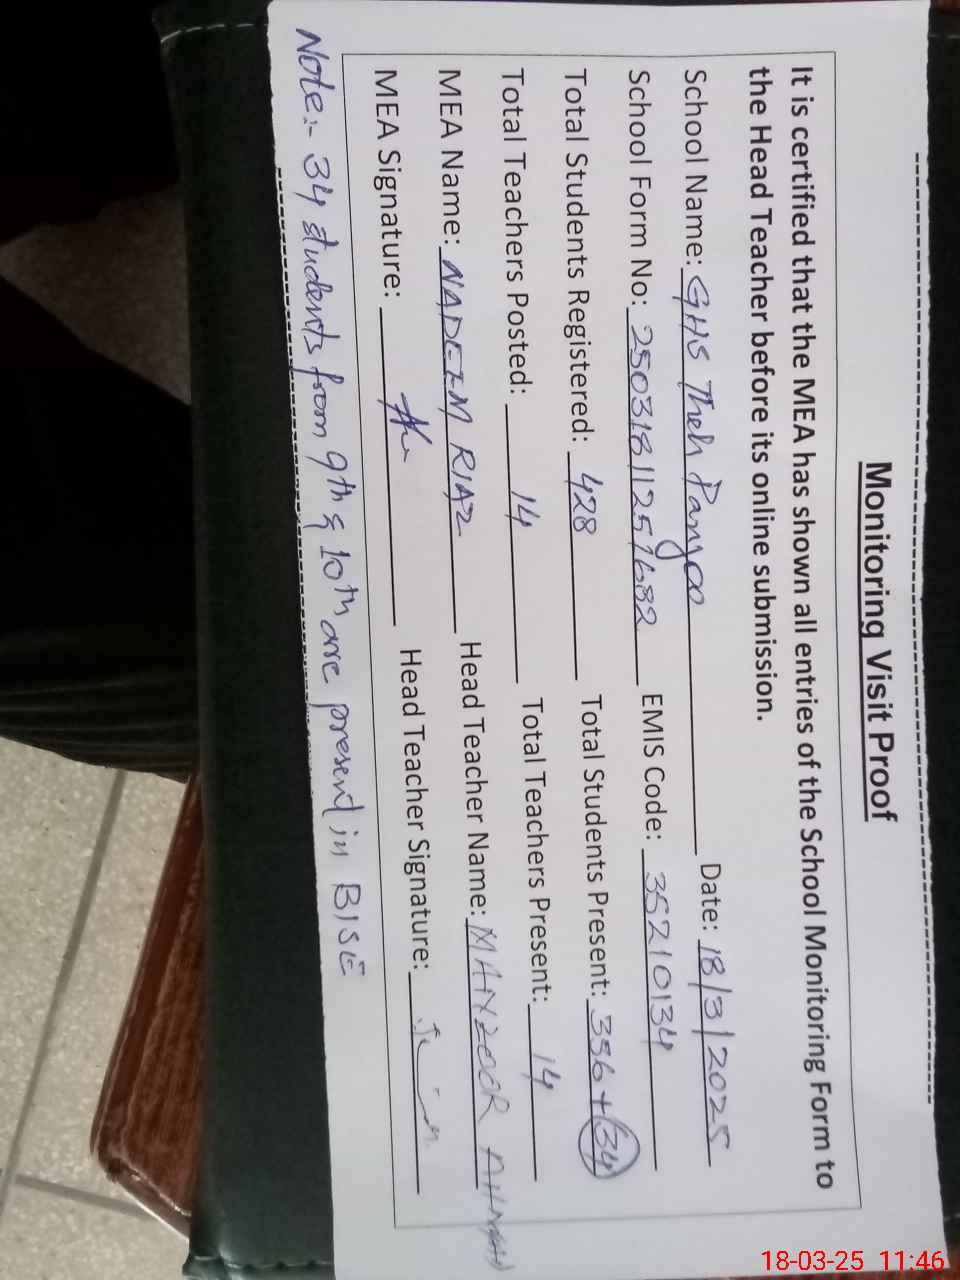 Monitoring Visit Proof
It is certified that the MEA has shown all entries of the School Monitoring Form to
the Head Teacher before its online submission.
School Name: GHS Theh Panyoo Date: 18/3/2025
School Form No: 25031811257682 EMIS Code: 35210134
Total Students Registered: 428 Total Students Present: 356+34
Total Teachers Posted: 14 Total Teachers Present: 14
MEA Name: NADEEM RIAZ Head Teacher Name: MANZOOR AHMAD
MEA Signature: Head Teacher Signature:
Note:- 34 students from 9th & 10th are present in BISE
18-03-25 11:46